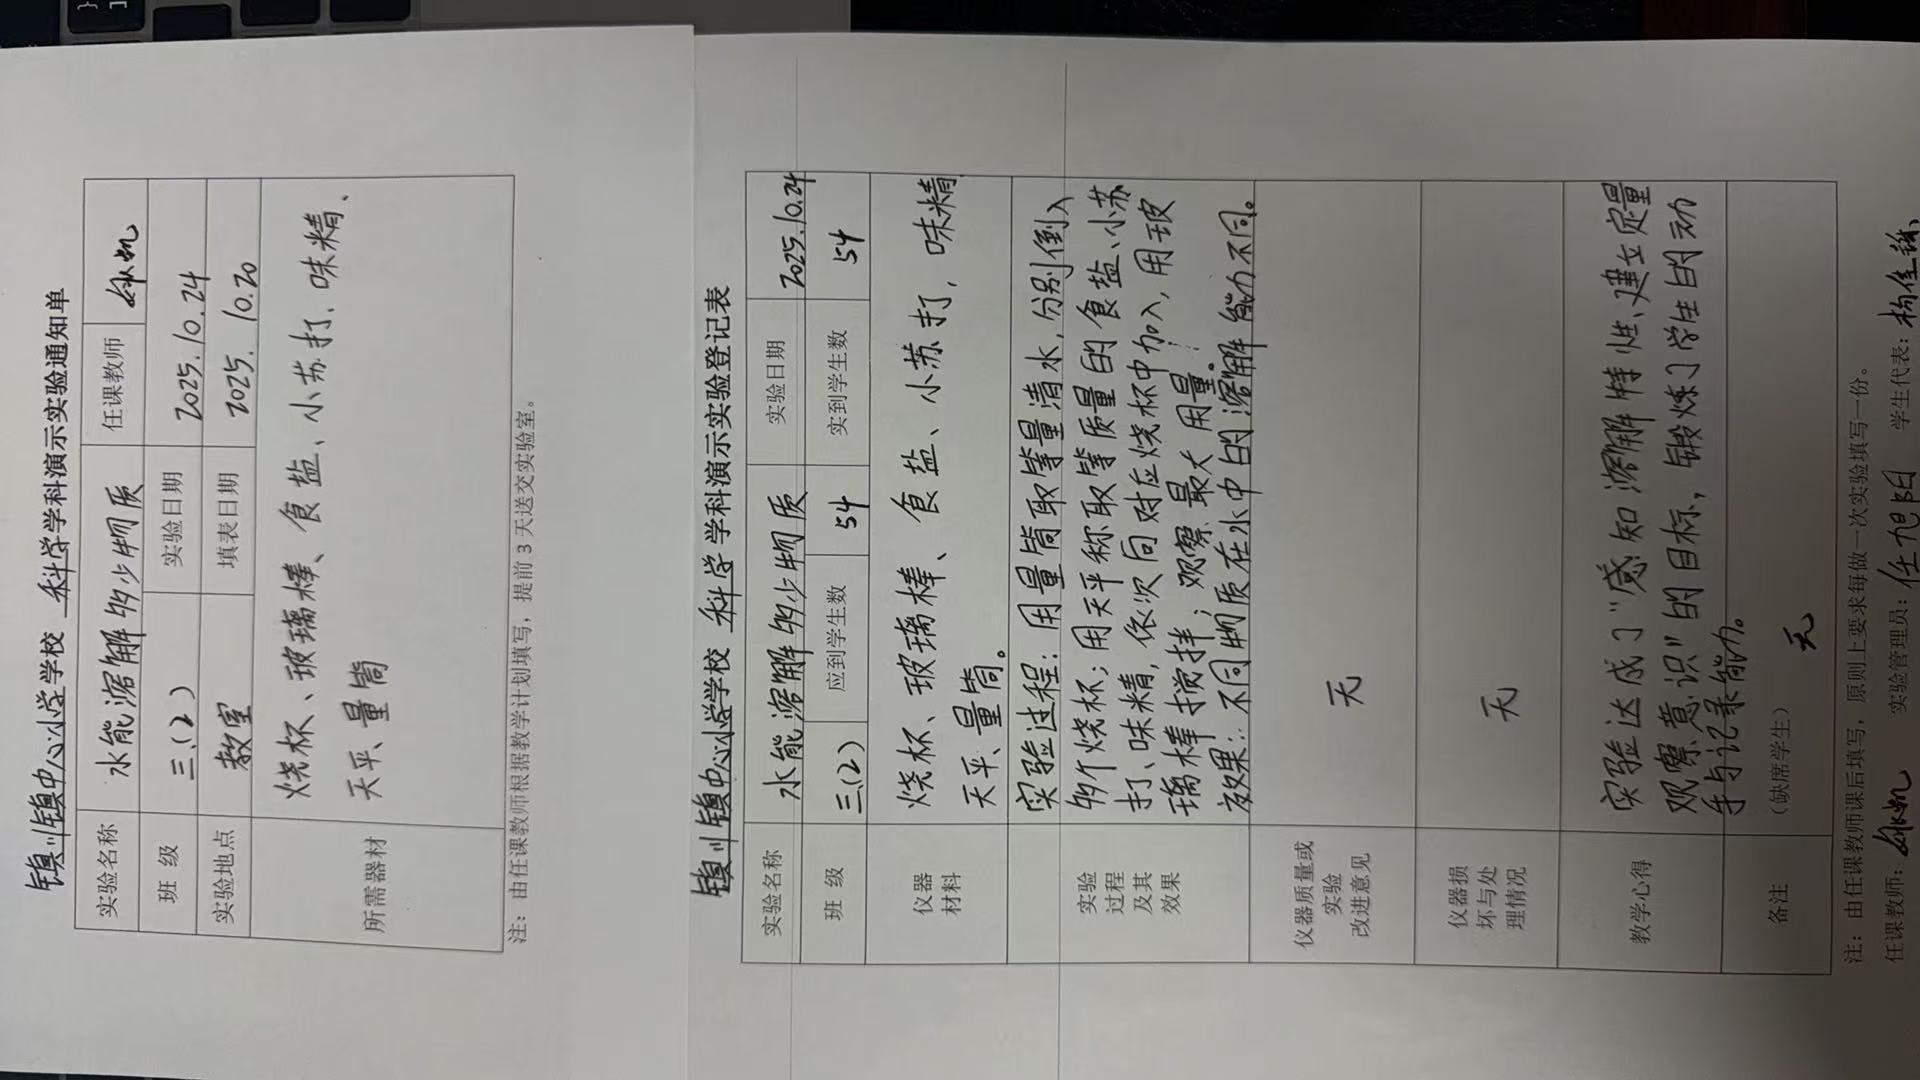 镇川镇中心小学学校 科学学科演示实验通知单
实验名称 水能溶解多少物质 任课教师
班 级 三.(2) 实验日期 2025.10.24
实验地点 教室 填表日期 2025.10.20
所需器材 烧杯、玻璃棒、食盐、小苏打、味精、
天平、量筒
注：由任课教师根据教学计划填写，提前 3 天送交实验室。
镇川镇中心小学学校 科学 学科演示实验登记表
实验名称 水能溶解多少物质 实验日期 2025.10.24
班 级 三.(2) 应到学生数 54 实到学生数 54
仪器
材料
烧杯、玻璃棒、食盐、小苏打，味精
天平、量筒。
实验
过程
及其
效果
实验过程：用量筒取等量清水，分别倒入
多个烧杯；用天平称取等质量的食盐、小苏
打、味精，依次向对应烧杯中加入，用玻
璃棒搅拌；观察最大用量。
效果：不同物质在水中的溶解能力不同。
仪器质量或
实验
改进意见
无
仪器损
坏与处
理情况
无
教学心得
实验达成了“感知溶解特性、建立定量
观察意识”的目标，锻炼了学生的动
手与记录能力。
备注 （缺席学生） 无
注：由任课教师课后填写，原则上要求每做一次实验填写一份。
任课教师： 实验管理员：任旭阳 学生代表：